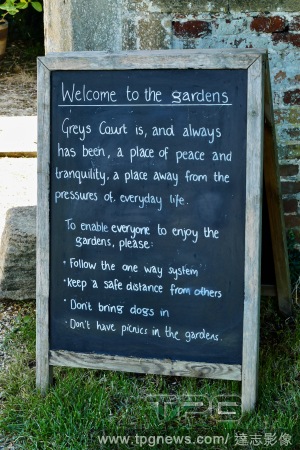 Welcome to the gardens
Greys Court is, and always
has been, a place of peace and
tranquility, a place away from the
pressures of everyday life.
To enable everyone to enjoy the
gardens, please:
• Follow the one way system
• Keep a safe distance from others
• Don't bring dogs in
• Don't have picnics in the gardens.
TPG
www.tpgnews.com/ 達志影像